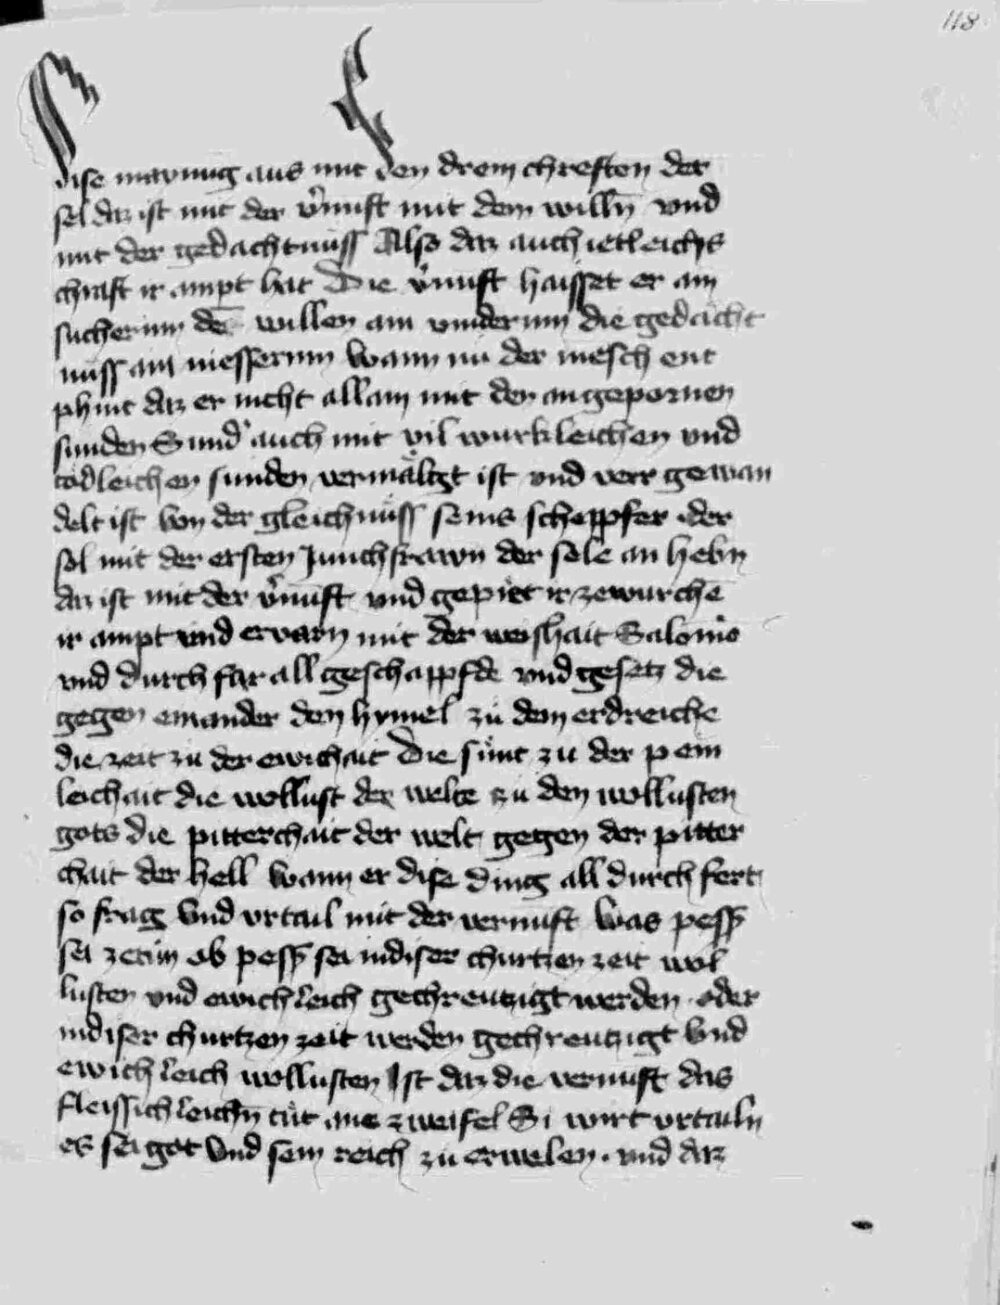 118
dise maynung aus mit den drein chreften der
sel daz ist mit der v̓nuft mit dem willn̄ vnd
mit der gedachtnuss Also daz auch ietleichs
chraft ir ampt hat Die v̓nuft haisset er ain
sucherinn den̄ willen ain vinderinn die gedacht
nuss ain niesserinn Wann nu der mēsch ent
phint daz er nicht allain mit den angepornen
sunden Sund̓ auch mit vil wurkleichen vnd
todleichen sunden vermailigt ist vnd verr gewan
delt ist von der gleichnuss seins scheppfer der
sol mit der ersten Junchfrawn der sele an hebn̄
daz ist mit der v̓nuft vnd gepiet ir zewurchē
ir ampt vnd ervarn mit der weishait Salomō
vnd durch far all geschappfde vnd gesetz die
gegen einander den hymel zu dem erdreiche
die zeit zu der ewichait Die sunt zu der pein
leichait die wollust der welte zu den wollusten
gots die pitterchait der welt gegen der pitter
chait der hell Wann er dise ding all durch fert
so frag vnd vrtail mit der vernuft Was pess̓
sei zetun ob pess̓ sei indiser churtzen zeit wol
lusten vnd ewichleich gechreutzigt werden oder
indiser churtzen zeit werden gechreutzigt Vnd
ewichleich wollusten Ist daz die vernuft das
fleissichleichn̄ tut ane zweifel Si wirt vrtailn
es sei got Vnd sein reich zu erwelen. vnd daz